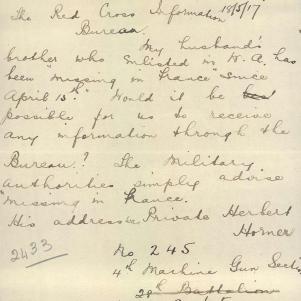 The Red Cross Information 18/5/17
Bureau.
My husband's
brother who enlisted in W.A. has
been "missing in France" since
April 15th. Would it be
possible for us to receive
any information through the
Bureau? The Military
authorities simply advise
"Missing in France.
His address is Private Herbert
Horner
2433
No 245
4th Machine Gun Sect
28th Battalion